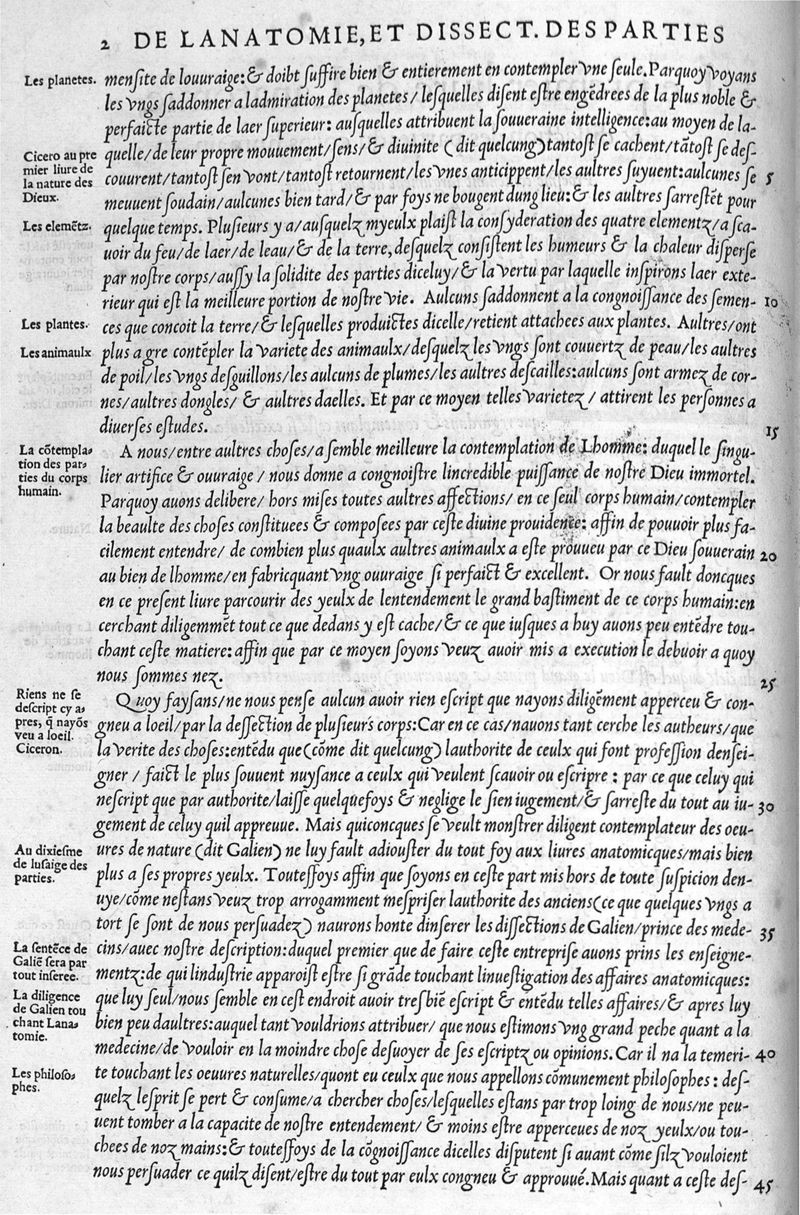 2 DE LANATOMIE, ET DISSECT. DES PARTIES
Les planetes.
menſite de louuraige: & doibt ſuffire bien & entierement en contempler vne ſeule. Parquoy voyans
les vngs ſaddonner a ladmiration des planetes/ leſquelles diſent eſtre engēdrees de la plus noble &
perfaicte partie de laer ſuperieur: auſquelles attribuent la ſouueraine intelligence: au moyen de la-
Cicero au pre
mier liure de
la nature des
Dieux.
quelle/ de leur propre mouuement/ ſens/ & diuinite ( dit quelcung) tantoſt ſe cachent/ tātoſt ſe deſ-
couurent/ tantoſt ſen vont/ tantoſt retournent/ les vnes anticippent/ les aultres ſuyuent: aulcunes ſe 5
meuuent ſoudain/ aulcunes bien tard/ & par foys ne bougent dung lieu: & les aultres ſarreſtēt pour
Les elemētz.
quelque temps. Pluſieurs y a/ auſquelz myeulx plaiſt la conſyderation des quatre elementz/ a ſca-
uoir du feu/ de laer/ de leau/ & de la terre, deſquelz conſiſtent les humeurs & la chaleur diſperſe
par noſtre corps/ auſſy la ſolidite des parties diceluy/ & la vertu par laquelle inſpirons laer exte-
rieur qui eſt la meilleure portion de noſtre vie. Aulcuns ſaddonnent a la congnoiſſance des ſemen- 10
Les plantes.
ces que concoit la terre/ & leſquelles produictes dicelle/ retient attachees aux plantes. Aultres/ ont
Les animaulx
plus a gre contēpler la variete des animaulx/ deſquelz les vngs ſont couuertz de peau/ les aultres
de poil/ les vngs deſguillons/ les aulcuns de plumes/ les aultres deſcailles: aulcuns ſont armez de cor-
nes/ aultres dongles/ & aultres daelles. Et par ce moyen telles varietez/ attirent les perſonnes a
diuerſes eſtudes. 15
La cōtempla-
tion des par-
ties du corps
humain.
A nous/ entre aultres choſes/ a ſemble meilleure la contemplation de Lhomme: duquel le ſingu-
lier artifice & ouuraige / nous donne a congnoiſtre lincredible puiſſance de noſtre Dieu immortel.
Parquoy auons delibere/ hors miſes toutes aultres affections/ en ce ſeul corps humain/ contempler
la beaulte des choſes conſtituees & compoſees par ceſte diuine prouidence: affin de pouuoir plus fa-
cilement entendre/ de combien plus quaulx aultres animaulx a eſte prouueu par ce Dieu ſouuerain 20
au bien de lhomme/ en fabricquant vng ouuraige ſi perfaict & excellent. Or nous fault doncques
en ce preſent liure parcourir des yeulx de lentendement le grand baſtiment de ce corps humain: en
cerchant diligemmēt tout ce que dedans y eſt cache/ & ce que iuſques a huy auons peu entēdre tou-
chant ceſte matiere: affin que par ce moyen ſoyons veuz auoir mis a execution le debuoir a quoy
nous ſommes nez. 25
Riens ne ſe
deſcript cy a-
pres, q̄ nayōs
veu a loeil.
Ciceron.
Quoy fayſans/ ne nous penſe aulcun auoir rien eſcript que nayons diligēment apperceu & con-
gneu a loeil/ par la deſſection de pluſieurs corps: Car en ce cas/ nauons tant cerche les autheurs/ que
la verite des choſes: entēdu que (cōme dit quelcung) lauthorite de ceulx qui font profeſſion denſei-
gner / faict le plus ſouuent nuyſance a ceulx qui veulent ſcauoir ou eſcripre : par ce que celuy qui
neſcript que par authorite/ laiſſe quelquefoys & neglige le ſien iugement/ & ſarreſte du tout au iu- 30
gement de celuy quil appreuue. Mais quiconcques ſe veult monſtrer diligent contemplateur des oeu-
Au dixieſme
de luſaige des
parties.
ures de nature (dit Galien) ne luy fault adiouſter du tout foy aux liures anatomicques/ mais bien
plus a ſes propres yeulx. Touteſſoys affin que ſoyons en ceſte part mis hors de toute ſuſpicion den-
uye/ cōme neſtans veuz trop arrogamment meſpriſer lauthorite des anciens (ce que quelques vngs a
tort ſe ſont de nous perſuadez) naurons honte dinſerer les diſſections de Galien/ prince des mede- 35
La ſentēce de
Galiē ſera par
tout inſeree.
cins/ auec noſtre deſcription: duquel premier que de faire ceſte entrepriſe auons prins les enſeigne-
mentz: de qui linduſtrie apparoiſt eſtre ſi grāde touchant linueſtigation des affaires anatomicques:
La diligence
de Galien tou
chant Lana-
tomie.
que luy ſeul/ nous ſemble en ceſt endroit auoir treſbiē eſcript & entēdu telles affaires/ & apres luy
bien peu daultres: auquel tant vouldrions attribuer/ que nous eſtimons vng grand peche quant a la
medecine/ de vouloir en la moindre choſe deſuoyer de ſes eſcriptz ou opinions. Car il na la temeri- 40
Les philoſo-
phes.
te touchant les oeuures naturelles/ quont eu ceulx que nous appellons cōmunement philoſophes : deſ-
quelz leſprit ſe pert & conſume/ a chercher choſes/ leſquelles eſtans par trop loing de nous/ ne peu-
uent tomber a la capacite de noſtre entendement/ & moins eſtre apperceues de noz yeulx/ ou tou-
chees de noz mains: & touteſſoys de la cōgnoiſſance dicelles diſputent ſi auant cōme ſilz vouloient
nous perſuader ce quilz diſent/ eſtre du tout par eulx congneu & approuué. Mais quant a ceſte deſ- 45